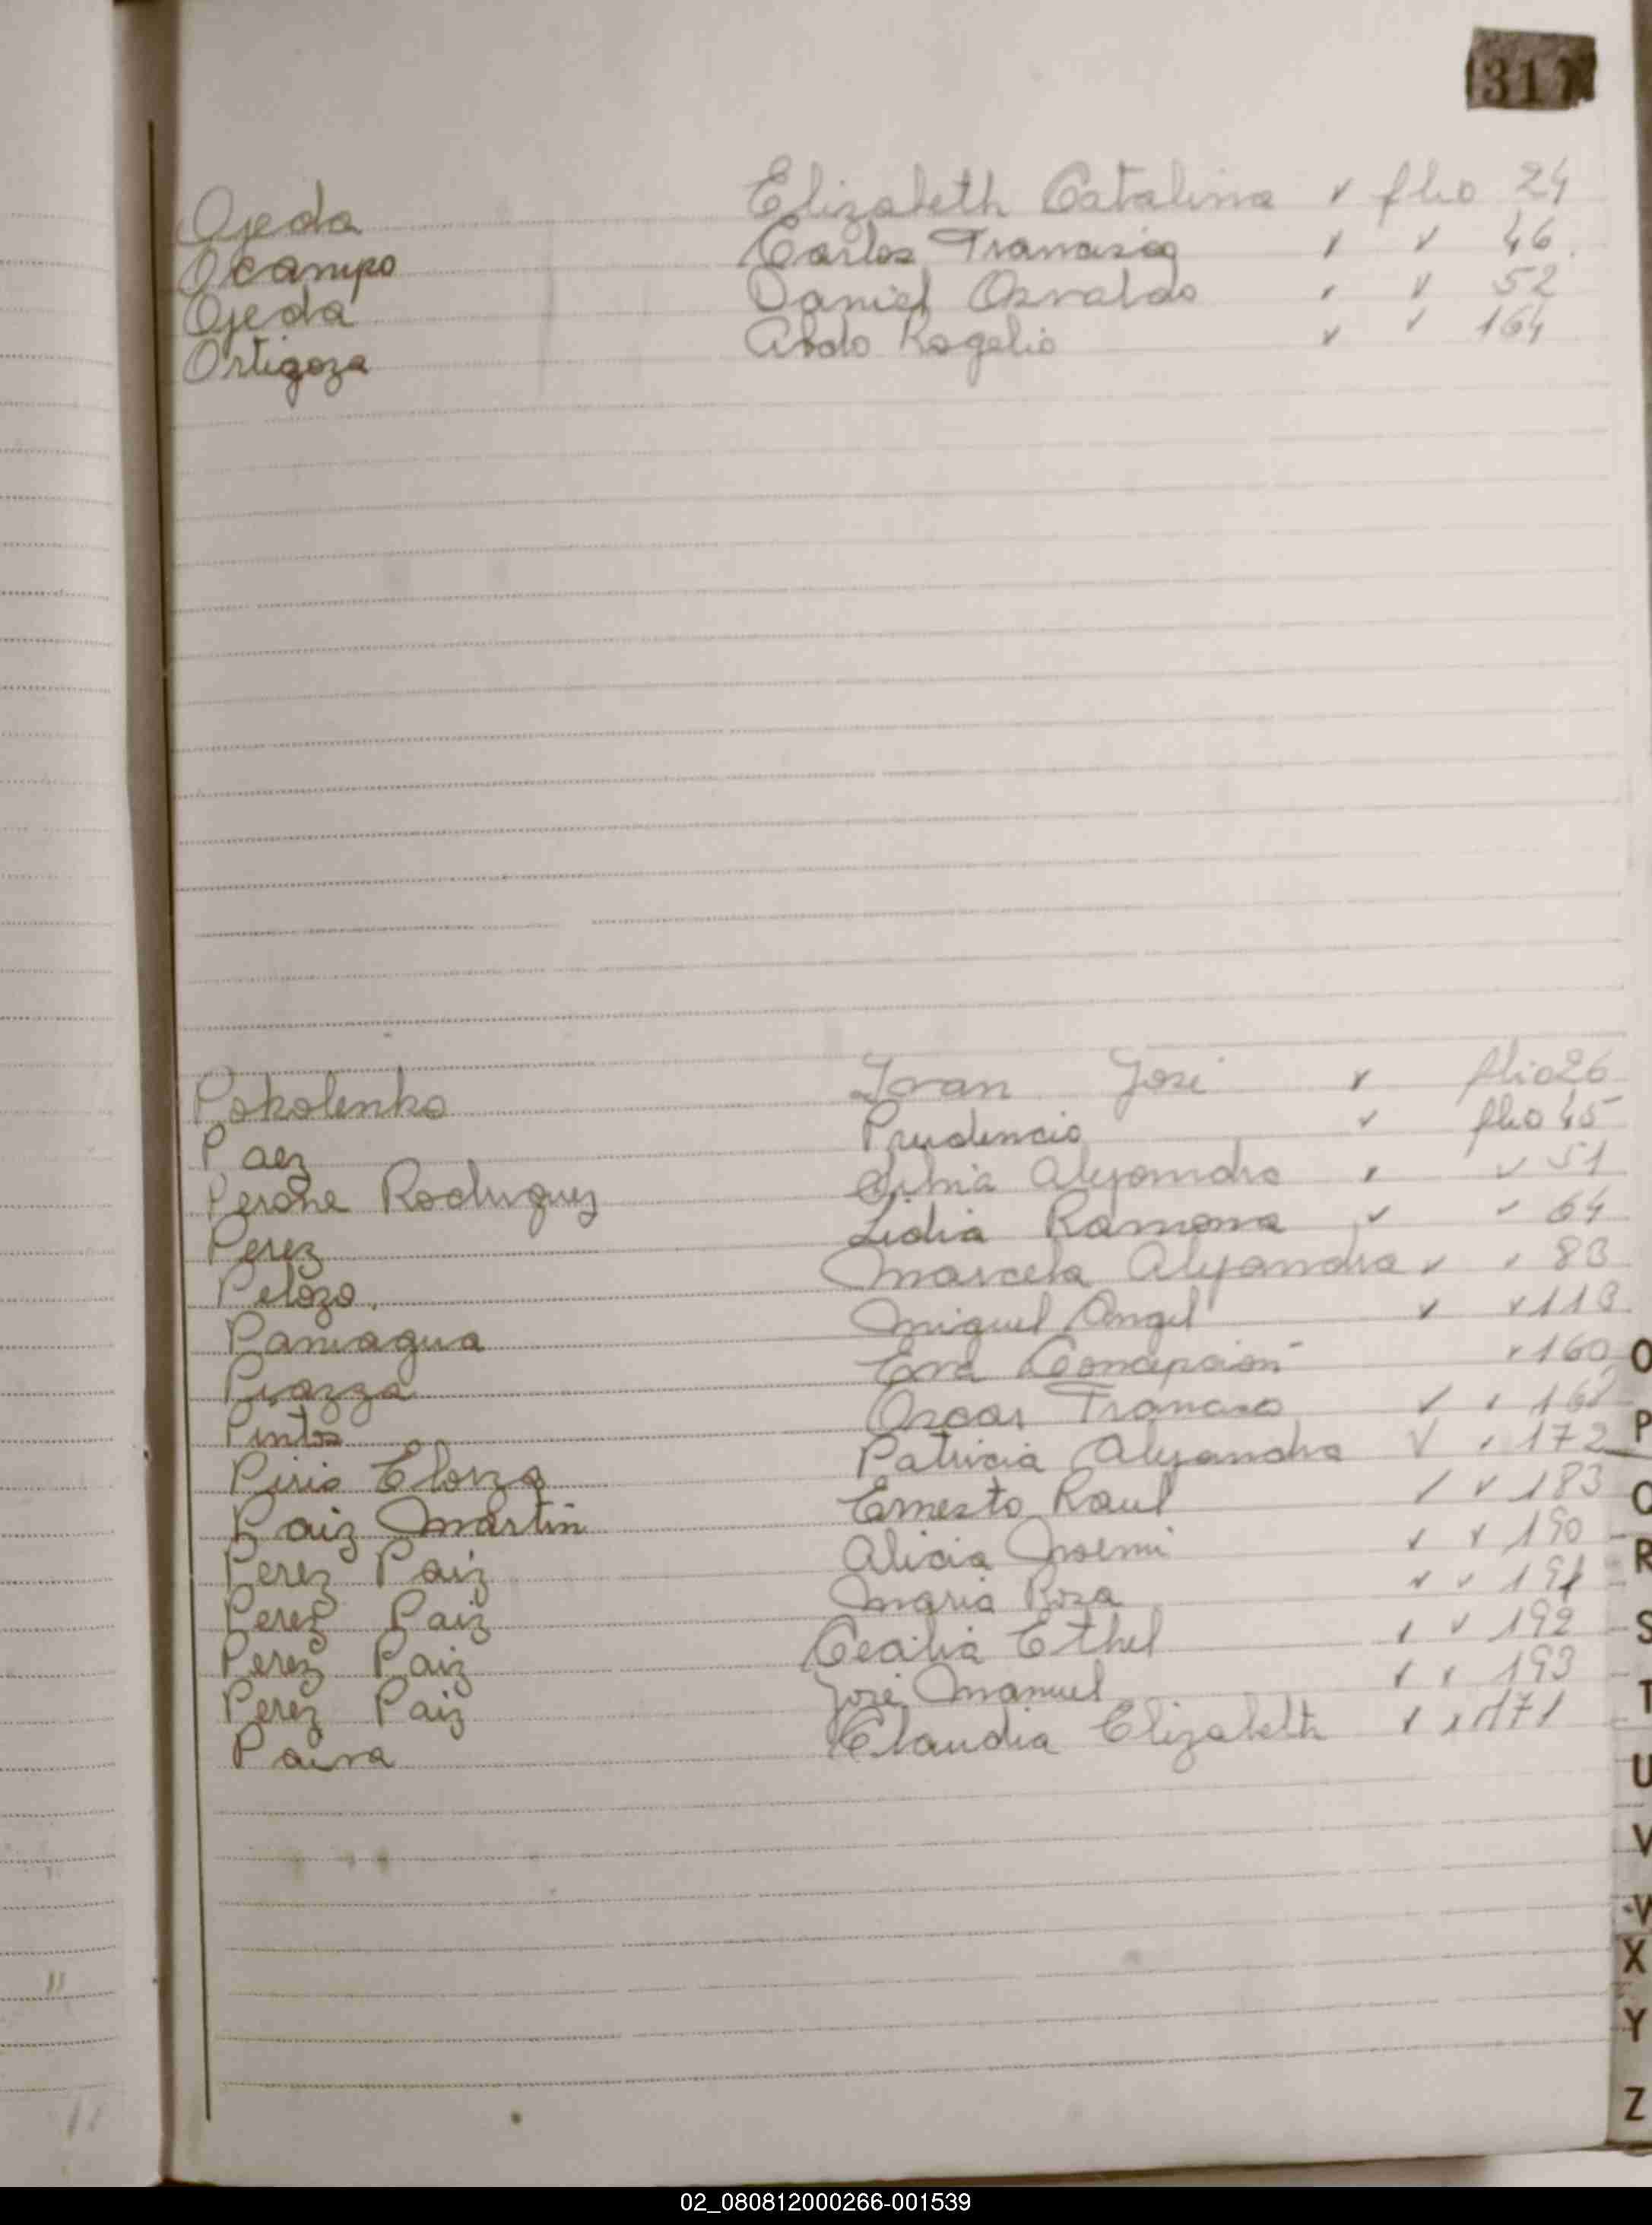 317
Ojeda Elizabeth Catalina v flio 24
Ocampo Carlos Francisco v v 46
Ojeda Daniel Osvaldo v v 52
Ortigoza Aldo Rogelio v v 164
Pokolenko Ivan José v flio 26
Paez Prudencio v flio 45
Perone Rodriguez Silvia Alejandra v v 51
Perez Lidia Ramona v v 64
Pelozo. Marcela Alejandra v v 83
Paniagua Miguel Angel v v 113
Piazza Eva Concepción v 160
Pintos Oscar Francisco v v
Piris Elorza Patricia Alejandra v v 172
Paiz Martin Ernesto Raul v v 183
Perez Paiz Alicia Noemi v v 190
Perez Paiz Maria Rosa v v 191
Perez Paiz Cecilia Ethel v v 192
Perez Paiz José Manuel v v 193
Paiva Claudia Elizabeth v v 171
O
P
Q
R
S
T
U
V
W
X
Y
Z
02_080812000266-001539